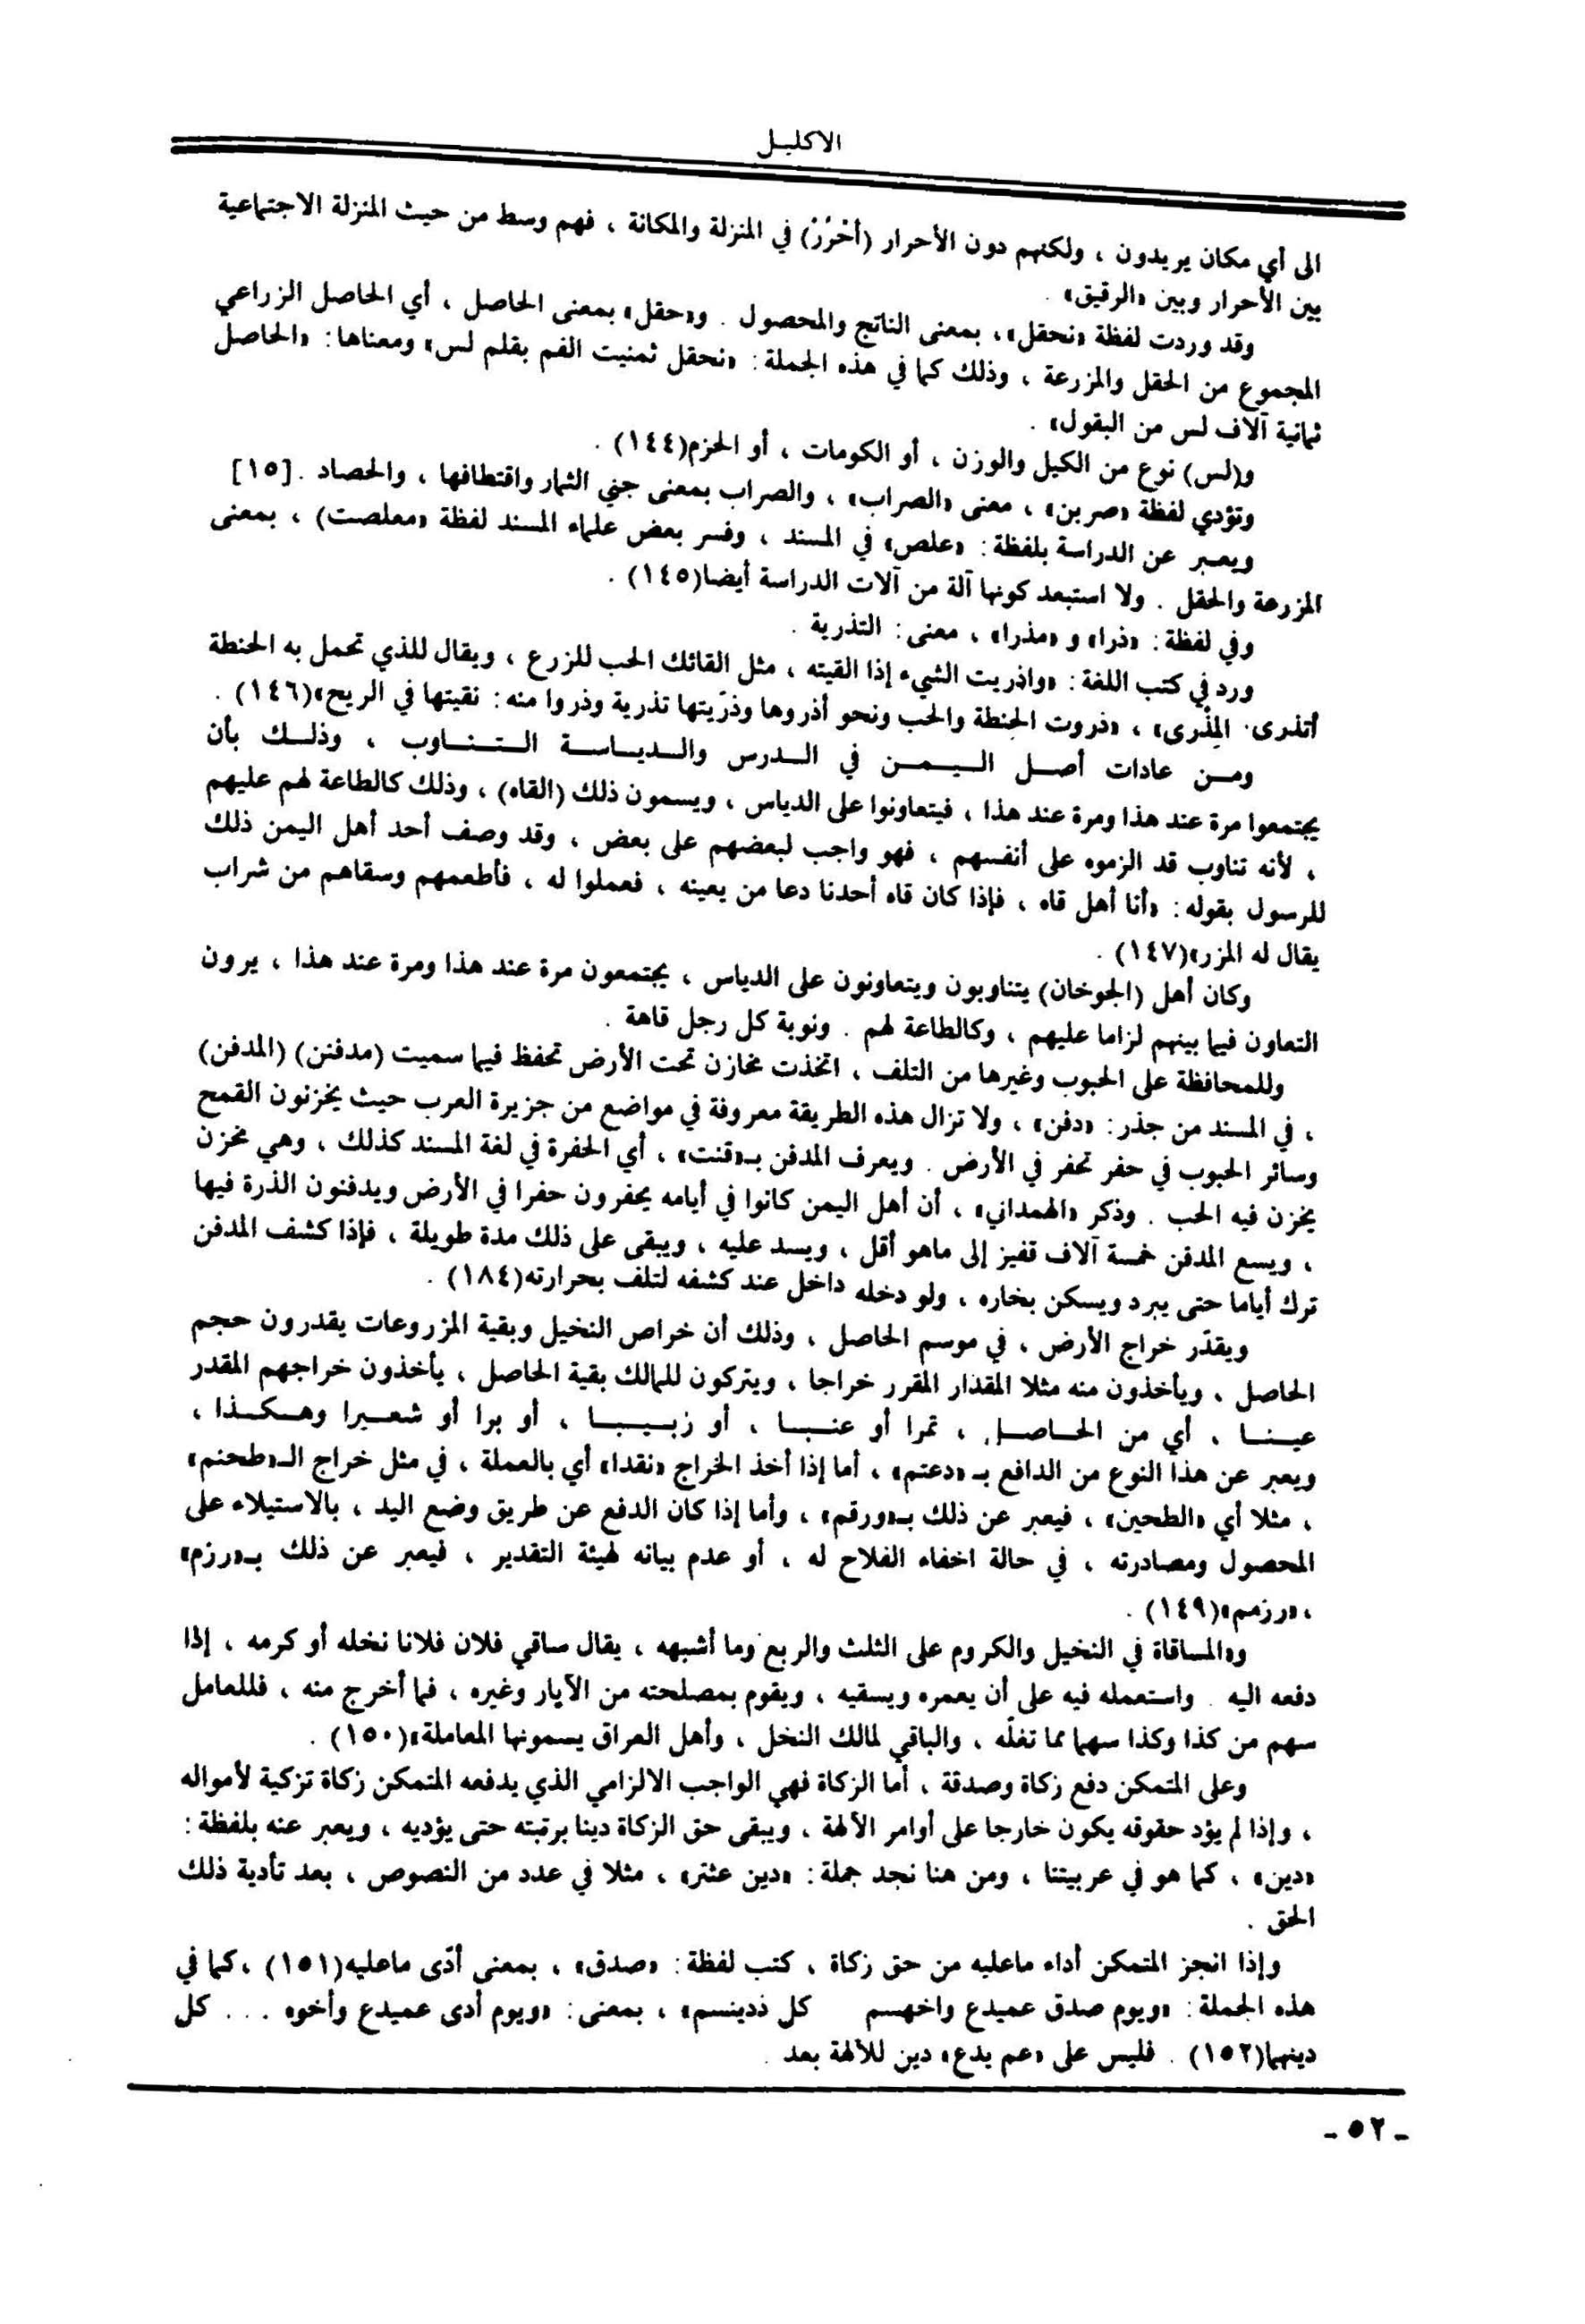 الاكليل
الى أي مكان يريدون ، ولكنهم دون الأحرار (أحْرُرْ) في المنزلة والمكانة ، فهم وسط من حيث المنزلة الاجتماعية
بين الأحرار وبين «الرقيق» .
وقد وردت لفظة «نحقل»، بمعنى الناتج والمحصول . و«حقل» بمعنى الحاصل ، أي الحاصل الزراعي
المجموع من الحقل والمزرعة ، وذلك كما في هذه الجملة: «نحقل ثمنيت الفم بقلم لس» ومعناها: «الحاصل
ثمانية آلاف لس من البقول» .
و(لس) نوع من الكيل والوزن ، أو الكومات ، أو الحزم(١٤٤) .
وتؤدي لفظة «صربن» ، معنى «الصراب» ، والصراب بمعنى جني الثمار واقتطافها ، والحصاد .[١٥]
ويعبر عن الدراسة بلفظة: «علص» في المسند ، وفسر بعض علماء المسند لفظة «معلصت) ، بمعنى
المزرعة والحقل . ولا استبعد كونها آلة من آلات الدراسة أيضا(١٤٥) .
وفي لفظة: «ذرا» و «مذرا» ، معنى: التذرية .
ورد في كتب اللغة: «واذريت الشيء إذا القيته ، مثل القائك الحب للزرع ، ويقال للذي تحمل به الحنطة
أتذرى. المِذْرى» ، «ذروت الحنطة والحب ونحو أذروها وذرّيتها تذرية وذروا منه: نقيتها في الريح»(١٤٦) .
ومن عادات أصل اليمن في الدرس والدياسة التناوب ، وذلك بأن
يجتمعوا مرة عند هذا ومرة عند هذا ، فيتعاونوا على الدياس ، ويسمون ذلك (القاه) ، وذلك كالطاعة لهم عليهم
، لأنه تناوب قد الزموه على أنفسهم ، فهو واجب لبعضهم على بعض ، وقد وصف أحد أهل اليمن ذلك
للرسول بقوله: «أنا أهل قاه ، فإذا كان قاه أحدنا دعا من يعينه ، فعملوا له ، فأطعمهم وسقاهم من شراب
يقال له المزر»(١٤٧) .
وكان أهل (الجوخان) يتناوبون ويتعاونون على الدياس ، يجتمعون مرة عند هذا ومرة عند هذا ، يرون
التعاون فيما بينهم لزاما عليهم ، وكالطاعة لهم . ونوبة كل رجل قاهة .
وللمحافظة على الحبوب وغيرها من التلف ، اتخذت مخازن تحت الأرض تحفظ فيما سميت (مدفنن) (المدفن)
، في المسند من جذر: «دفن» ، ولا تزال هذه الطريقة معروفة في مواضع من جزيرة العرب حيث يخزنون القمح
وسائر الحبوب في حفر تحفر في الأرض . ويعرف المدفن بـ«قنت» ، أي الحفرة في لغة المسند كذلك ، وهي مخزن
يخزن فيه الحب . وذكر «الهمداني» ، أن أهل اليمن كانوا في أيامه يحفرون حفرا في الأرض ويدفنون الذرة فيها
، ويسع المدفن خمسة آلاف قفيز إلى ماهو أقل ، ويسد عليه ، ويبقى على ذلك مدة طويلة ، فإذا كشف المدفن
ترك أياما حتى يبرد ويسكن بخاره ، ولو دخله داخل عند كشفه لتلف بحرارته(١٨٤) .
ويقدّر خراج الأرض ، في موسم الحاصل ، وذلك أن خراص النخيل وبقية المزروعات يقدرون حجم
الحاصل ، ويأخذون منه مثلا المقدار المقرر خراجا ، ويتركون للمالك بقية الحاصل ، يأخذون خراجهم المقدر
عينا ، أي من الحاصل ، تمرا أو عنبا ، أو زبيبا ، أو برا أو شعيرا وهكذا ،
ويعبر عن هذا النوع من الدافع بـ «دعتم» ، أما إذا أخذ الخراج «نقدا» أي بالعملة ، في مثل خراج الـ«طحنم»
، مثلا أي «الطحين» ، فيعبر عن ذلك بـ«ورقم» ، وأما إذا كان الدفع عن طريق وضع اليد ، بالاستيلاء على
المحصول ومصادرته ، في حالة اخفاء الفلاح له ، أو عدم بيانه لهيئة التقدير ، فيعبر عن ذلك بـ«رزم»
، «رزمم»(١٤٩) .
و«المساقاة في النخيل والكروم على الثلث والربع وما أشبهه ، يقال ساقي فلان فلانا نخله أو كرمه ، إذا
دفعه اليه . واستعمله فيه على أن يعمره ويسقيه ، ويقوم بمصلحته من الآبار وغيره ، فما أخرج منه ، فللعامل
سهم من كذا وكذا سهما مما تغلّه ، والباقي لمالك النخل ، وأهل العراق يسمونها المعاملة»(١٥٠) .
وعلى المتمكن دفع زكاة وصدقة ، أما الزكاة فهي الواجب الالزامي الذي يدفعه المتمكن زكاة تزكية لأمواله
، وإذا لم يؤد حقوقه يكون خارجا على أوامر الآلهة ، ويبقى حق الزكاة دينا برقبته حتى يؤديه ، ويعبر عنه بلفظة:
«دين» ، كما هو في عربيتنا ، ومن هنا نجد جملة: «دين عثتر» ، مثلا في عدد من النصوص ، بعد تأدية ذلك
الحق .
وإذا انجز المتمكن أداء ماعليه من حق زكاة ، كتب لفظة: «صدق» ، بمعنى أدّى ماعليه(١٥١) ،كما في
هذه الجملة: «ويوم صدق عميدع واخهسم كل ذدينسم» ، بمعنى: «ويوم أدى عميدع وأخوه ... كل
دينهما(١٥٢) . فليس على «عم يدع» دين للآلهة بعد .
- ٥٢ -